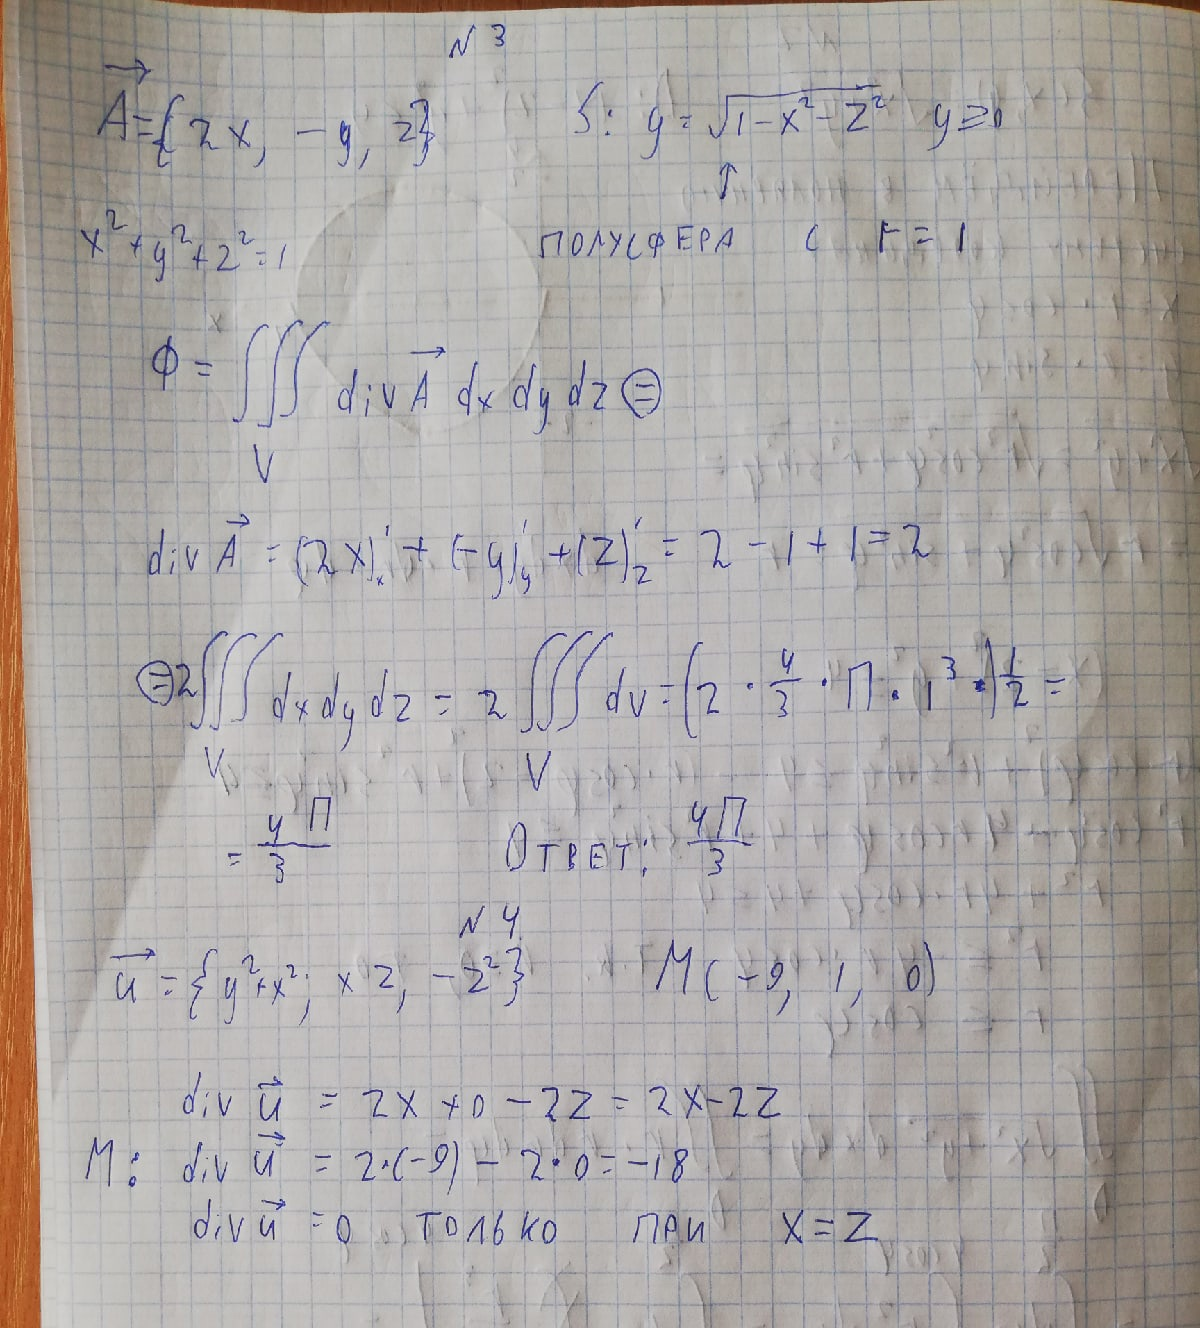 N 3
A⃗ = {2x, -y, z}   S: y = √(1-x²-z²)   y≥0
↑
x²+y²+z²=1   ПОЛУСФЕРА С r = 1
Ф = ∭ div A⃗ dx dy dz ⊜
V
div A⃗ = (2x)'ₓ + (-y)'y + (z)'z = 2 - 1 + 1 = 2
⊜ 2∭ dx dy dz = 2 ∭ dv = (2 · 4/3 · П · 1³ ·) 1/2 =
V   V
= 4П/3   Ответ: 4П/3
N 4
u⃗ = {y²+x²; xz, -z²}   M(-9, 1, 0)
div u⃗ = 2x + 0 - 2z = 2x-2z
M: div u⃗ = 2·(-9) - 2·0 = -18
div u⃗ = 0 ТОЛЬКО ПРИ x = z